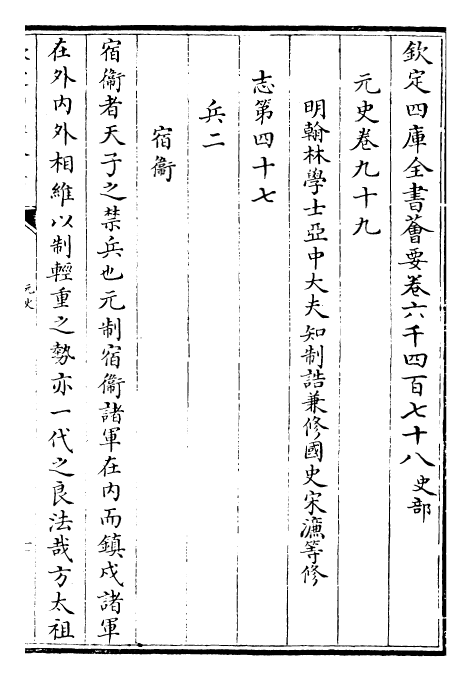 欽定四庫全書薈要卷六千四百七十八史部
元史卷九十九
明翰林學士亞中大夫知制誥兼修國史宋濂等修
志第四十七
兵二
宿衞
宿衞者天子之禁兵也元制宿衞諸軍在内而鎮戍諸軍
在外内外相維以制輕重之勢亦一代之良法哉方太祖
元史